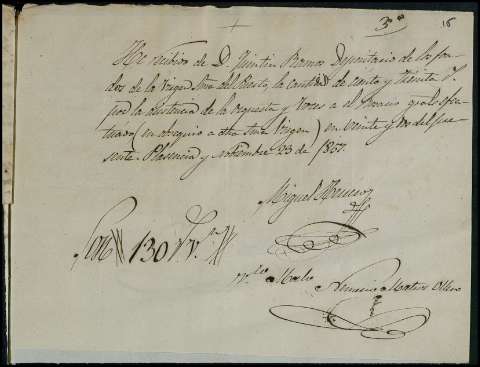 3º
16
He recibido de D. Quintin Ramos Depositario de los fon-
dos de la Virgen Sra del Puerto, la cantidad de ciento y treinta r.
por la asistencia de la orquesta y voces a el que se efec-
tuado (en obsequio a dha Sma Virgen) en veinte y dos del pre-
sente. Plasencia y Noviembre 23 de 1857.
Miguel
Son 130 rs. vn.
Vº Bº
Mateos